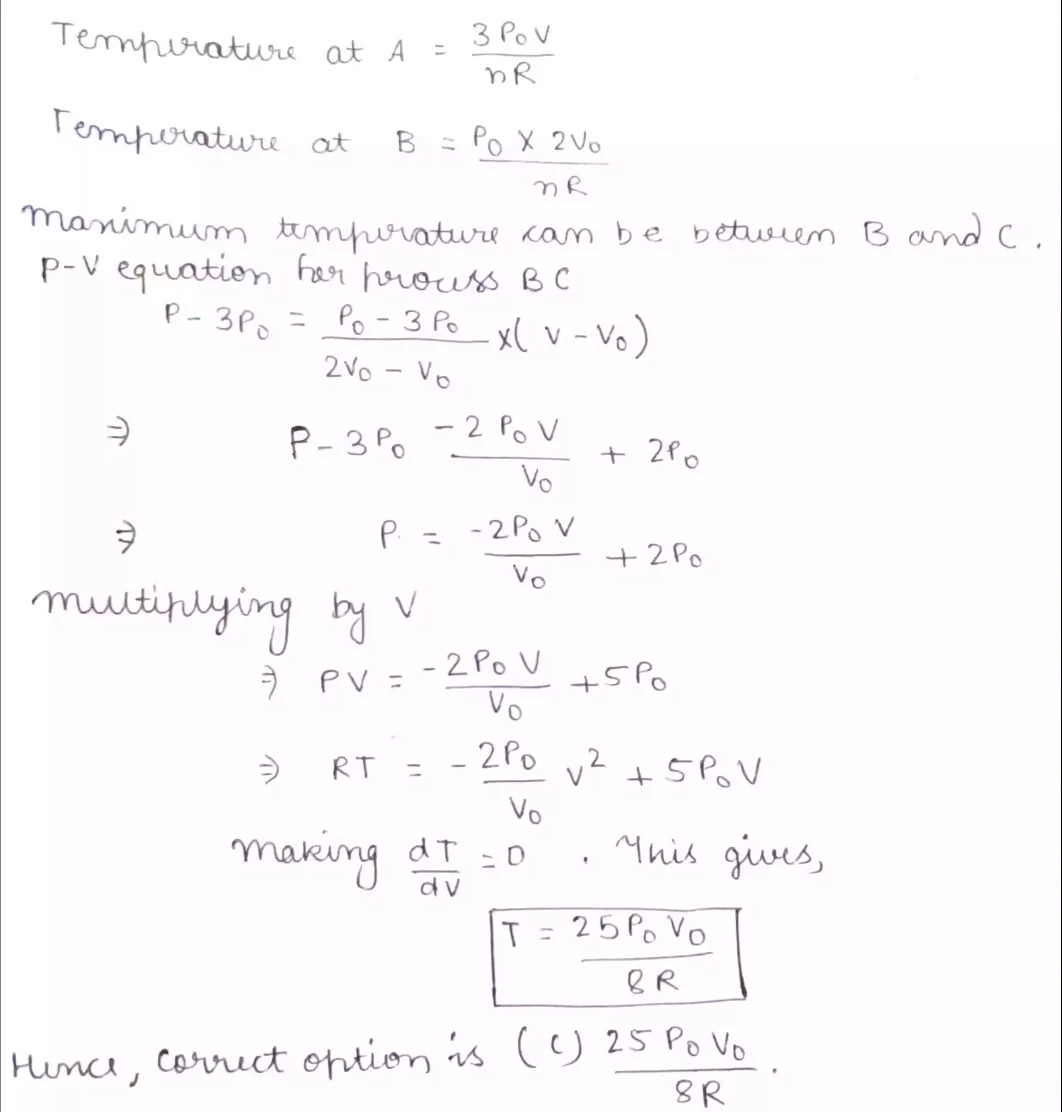 Temperature at A = 3P₀V / nR
Temperature at B = P₀ X 2V₀ / nR
Maximum temperature can be between B and C.
P-V equation for process BC
P - 3P₀ = (P₀ - 3P₀) / (2V₀ - V₀) x( V - V₀)
⇒ P - 3P₀ -2P₀V / V₀ + 2P₀
⇒ P. = -2P₀V / V₀ + 2P₀
multiplying by V
⇒ PV = -2P₀V / V₀ +5P₀
⇒ RT = -2P₀ / V₀ V² + 5P₀V
Making dT / dV = 0 . This gives,
T = 25P₀V₀ / 8R
Hence, correct option is (C) 25P₀V₀ / 8R .